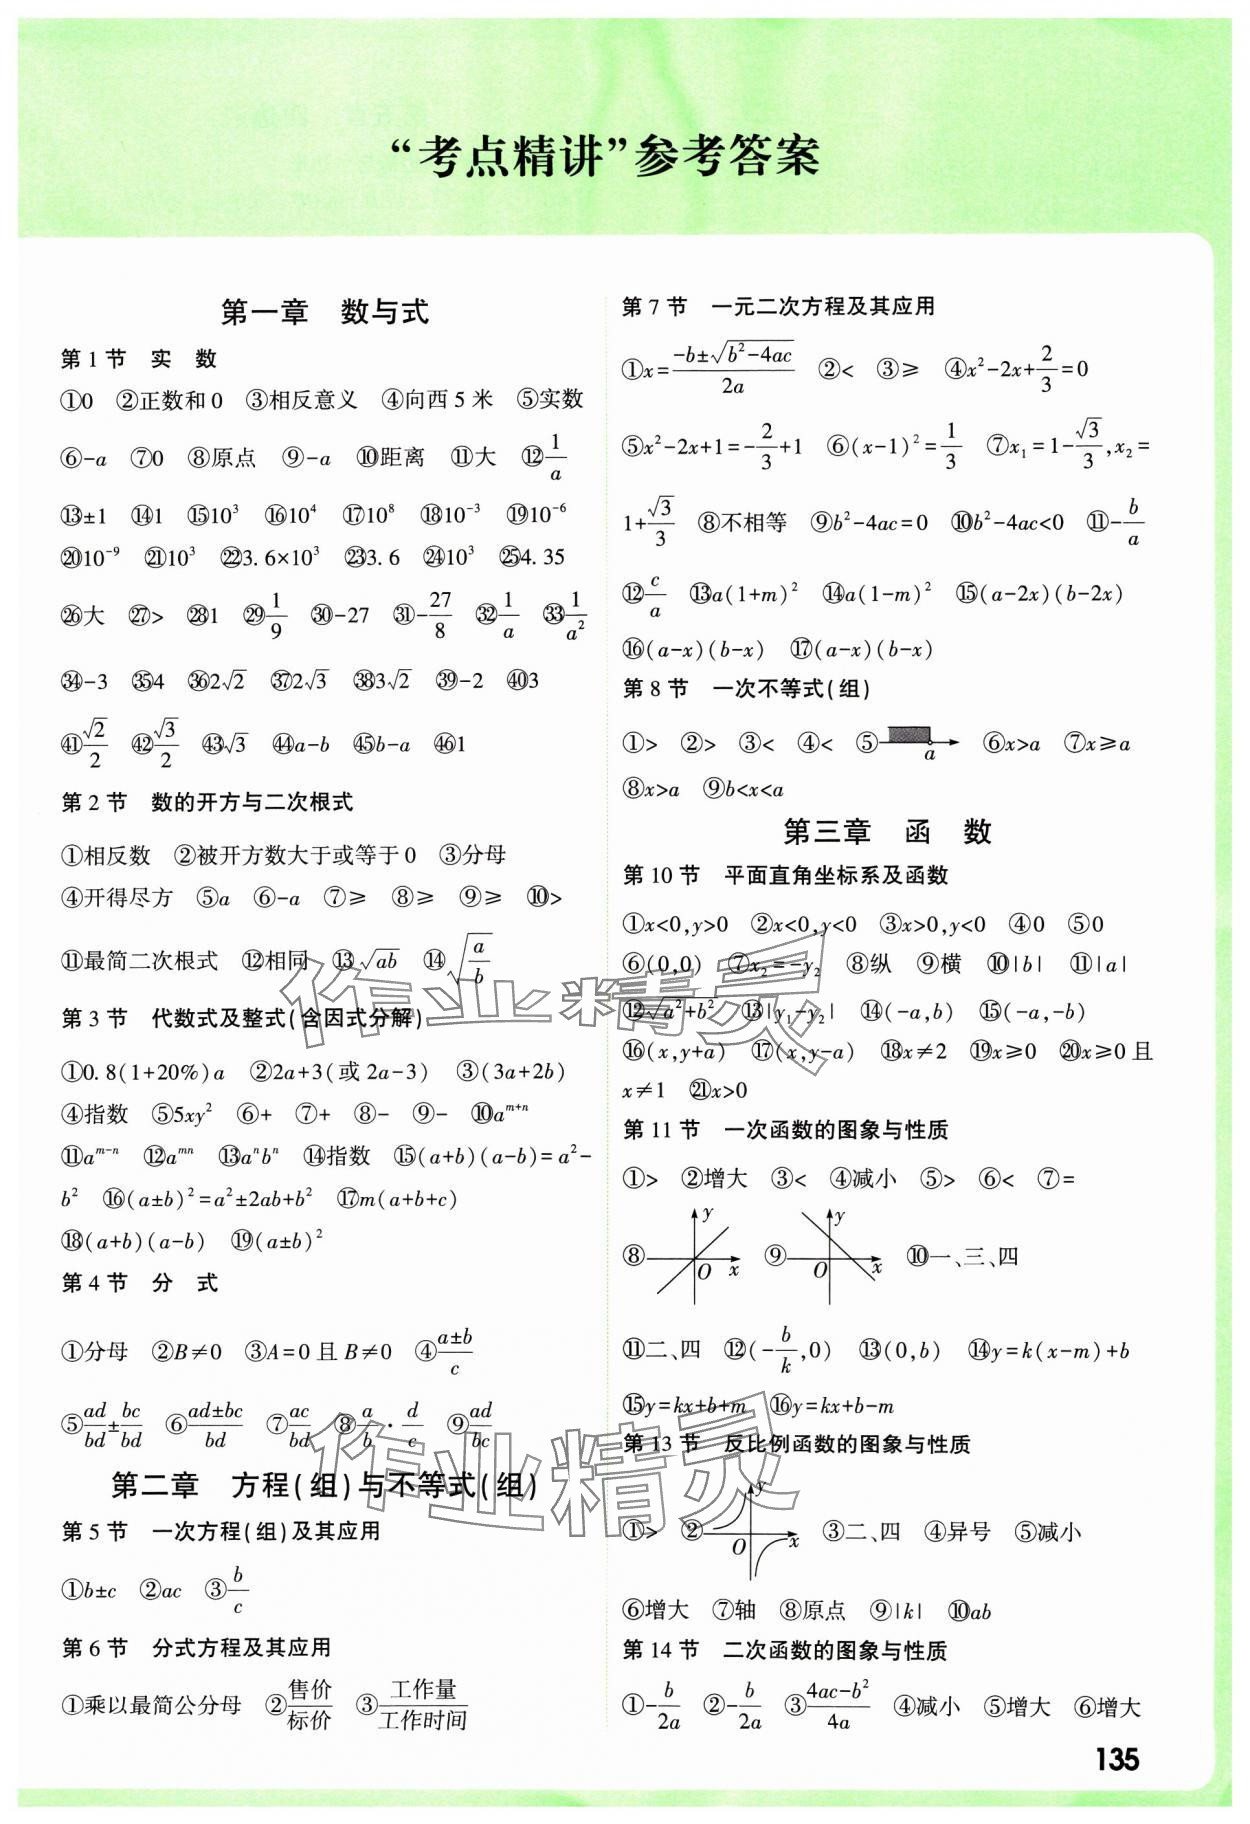 “考点精讲”参考答案
第一章 数与式
第1节 实 数
①0 ②正数和0 ③相反意义 ④向西5米 ⑤实数
⑥-a ⑦0 ⑧原点 ⑨-a ⑩距离 ⑪大 ⑫1/a
⑬±1 ⑭1 ⑮10³ ⑯10⁴ ⑰10⁸ ⑱10⁻³ ⑲10⁻⁶
⑳10⁻⁹ ㉑10³ ㉒3.6×10³ ㉓3.6 ㉔10³ ㉕4.35
㉖大 ㉗> ㉘1 ㉙1/9 ㉚-27 ㉛-27/8 ㉜1/a ㉝1/a²
㉞-3 ㉟4 ㊱2√2 ㊲2√3 ㊳3√2 ㊴-2 ㊵3
㊶√2/2 ㊷√3/2 ㊸√3 ㊹a-b ㊺b-a ㊻1
第2节 数的开方与二次根式
①相反数 ②被开方数大于或等于0 ③分母
④开得尽方 ⑤a ⑥-a ⑦≥ ⑧≥ ⑨≥ ⑩>
⑪最简二次根式 ⑫相同 ⑬√ab ⑭√(a/b)
第3节 代数式及整式(含因式分解)
①0.8(1+20%)a ②2a+3(或2a-3) ③(3a+2b)
④指数 ⑤5xy² ⑥+ ⑦+ ⑧- ⑨- ⑩aᵐ⁺ⁿ
⑪aᵐ⁻ⁿ ⑫aᵐⁿ ⑬aⁿbⁿ ⑭指数 ⑮(a+b)(a-b)=a²-
b² ⑯(a±b)²=a²±2ab+b² ⑰m(a+b+c)
⑱(a+b)(a-b) ⑲(a±b)²
第4节 分 式
①分母 ②B≠0 ③A=0且B≠0 ④(a±b)/c
⑤ad/bd±bc/bd ⑥(ad±bc)/bd ⑦ac/bd ⑧a/b·d/c ⑨ad/bc
第二章 方程(组)与不等式(组)
第5节 一次方程(组)及其应用
①b±c ②ac ③b/c
第6节 分式方程及其应用
①乘以最简公分母 ②售价/标价 ③工作量/工作时间
第7节 一元二次方程及其应用
①x=(-b±√(b²-4ac))/2a ②< ③≥ ④x²-2x+2/3=0
⑤x²-2x+1=-2/3+1 ⑥(x-1)²=1/3 ⑦x₁=1-√3/3,x₂=
1+√3/3 ⑧不相等 ⑨b²-4ac=0 ⑩b²-4ac<0 ⑪-b/a
⑫c/a ⑬a(1+m)² ⑭a(1-m)² ⑮(a-2x)(b-2x)
⑯(a-x)(b-x) ⑰(a-x)(b-x)
第8节 一次不等式(组)
①> ②> ③< ④< ⑤ a ⑥x>a ⑦x≥a
⑧x>a ⑨b<x<a
第三章 函 数
第10节 平面直角坐标系及函数
①x<0,y>0 ②x<0,y<0 ③x>0,y<0 ④0 ⑤0
⑥(0,0) ⑦x₂=-y₂ ⑧纵 ⑨横 ⑩|b| ⑪|a|
⑫√(a²+b²) ⑬|y₁-y₂| ⑭(-a,b) ⑮(-a,-b)
⑯(x,y+a) ⑰(x,y-a) ⑱x≠2 ⑲x≥0 ⑳x≥0且
x≠1 ㉑x>0
第11节 一次函数的图象与性质
①> ②增大 ③< ④减小 ⑤> ⑥< ⑦=
⑧ y O x ⑨ y O x ⑩一、三、四
⑪二、四 ⑫(-b/k,0) ⑬(0,b) ⑭y=k(x-m)+b
⑮y=kx+b+m ⑯y=kx+b-m
第13节 反比例函数的图象与性质
①> ② y O x ③二、四 ④异号 ⑤减小
⑥增大 ⑦轴 ⑧原点 ⑨|k| ⑩ab
第14节 二次函数的图象与性质
①-b/2a ②-b/2a ③(4ac-b²)/4a ④减小 ⑤增大 ⑥增大
135
作业精灵
作业精灵